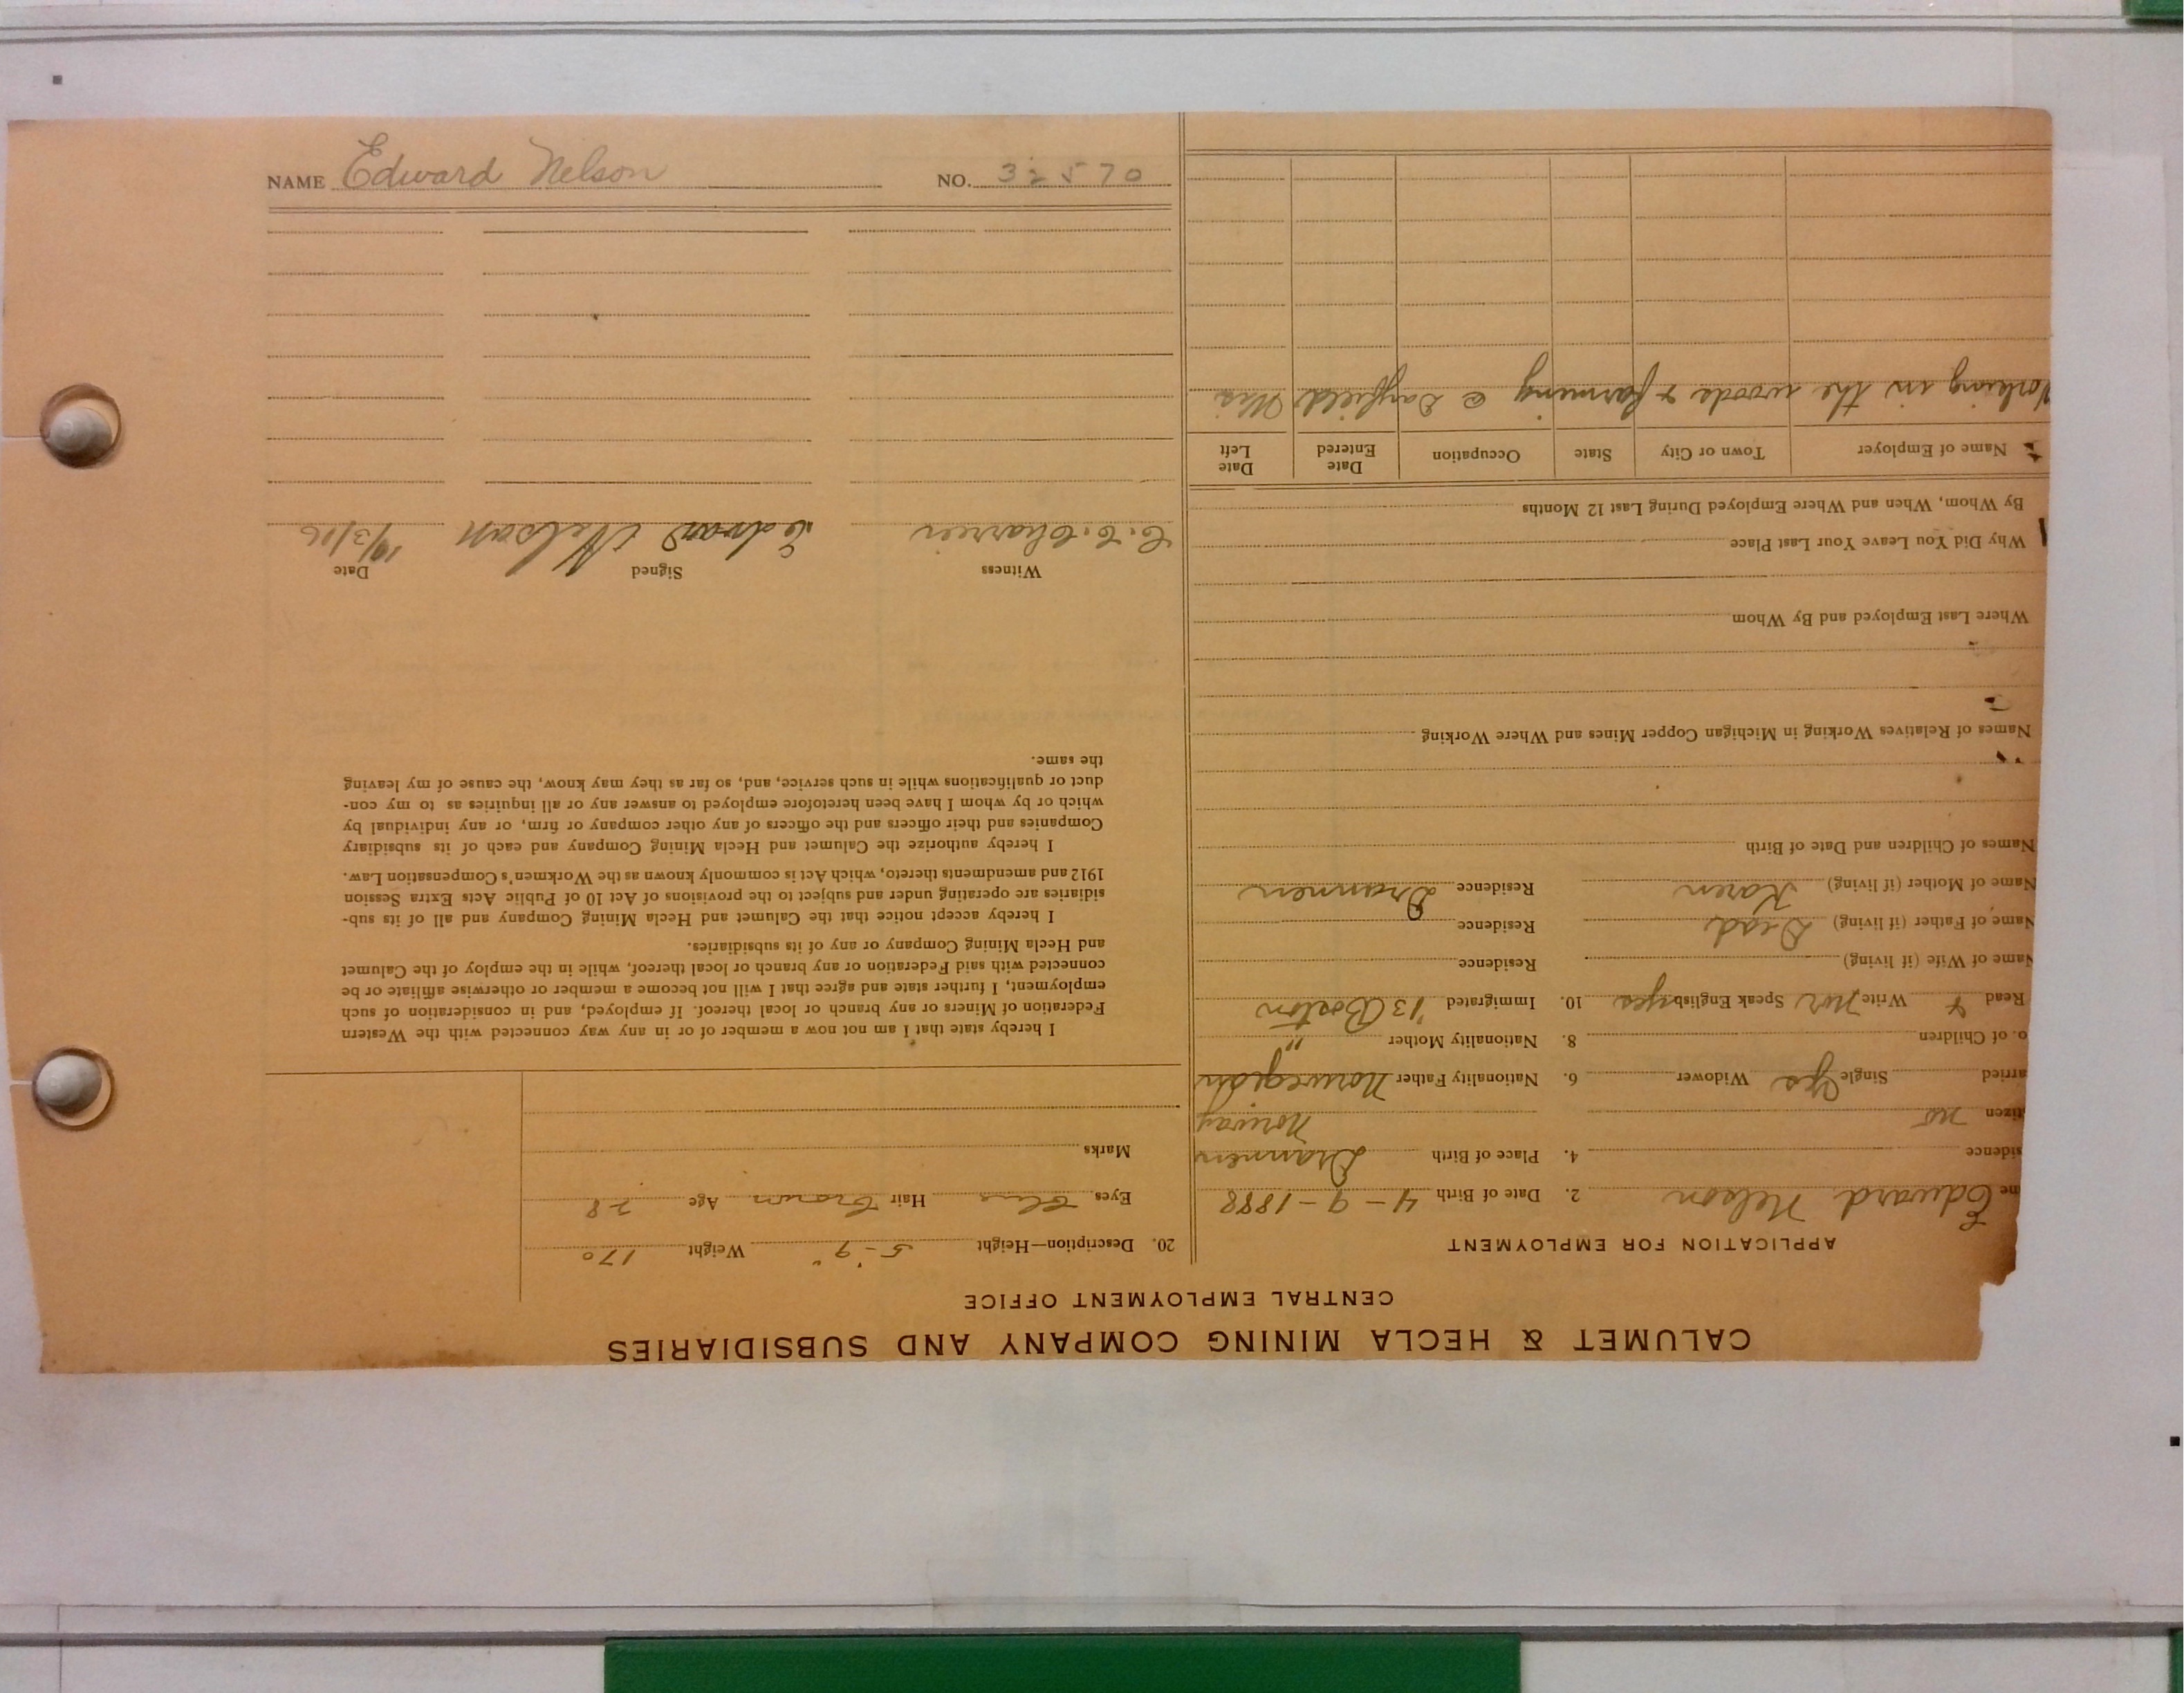 NAME Edward Nelson NO. 32570
CALUMET & HECLA MINING COMPANY AND SUBSIDIARIES
CENTRAL EMPLOYMENT OFFICE
APPLICATION FOR EMPLOYMENT
me Edward Nelson 2. Date of Birth 4-9-1888
sidence 4. Place of Birth Drammen
tizen no Norway
arried Single Yes Widower 6. Nationality Father Norwegian
o. of Children 8. Nationality Mother "
Read & Write Nor Speak English yes 10. Immigrated '13 Boston
Name of Wife (if living) Residence
Name of Father (if living) Dead Residence
Name of Mother (if living) Karen Residence Drammen
Names of Children and Date of Birth
Names of Relatives Working in Michigan Copper Mines and Where Working
Where Last Employed and By Whom
Why Did You Leave Your Last Place
By Whom, When and Where Employed During Last 12 Months
Name of Employer Town or City State Occupation Date Entered Date Left
Working in the woods & farming @ Bayfield Wis
20. Description—Height 5'-9" Weight 170
Eyes blue Hair brown Age 28
Marks
I hereby state that I am not now a member of or in any way connected with the Western
Federation of Miners or any branch or local thereof. If employed, and in consideration of such
employment, I further state and agree that I will not become a member or otherwise affiliate or be
connected with said Federation or any branch or local thereof, while in the employ of the Calumet
and Hecla Mining Company or any of its subsidiaries.
I hereby accept notice that the Calumet and Hecla Mining Company and all of its sub-
sidiaries are operating under and subject to the provisions of Act 10 of Public Acts Extra Session
1912 and amendments thereto, which Act is commonly known as the Workmen's Compensation Law.
I hereby authorize the Calumet and Hecla Mining Company and each of its subsidiary
Companies and their officers and the officers of any other company or firm, or any individual by
which or by whom I have been heretofore employed to answer any or all inquiries as to my con-
duct or qualifications while in such service, and, so far as they may know, the cause of my leaving
the same.
Witness Signed Date
Edward Nelson 10/3/16